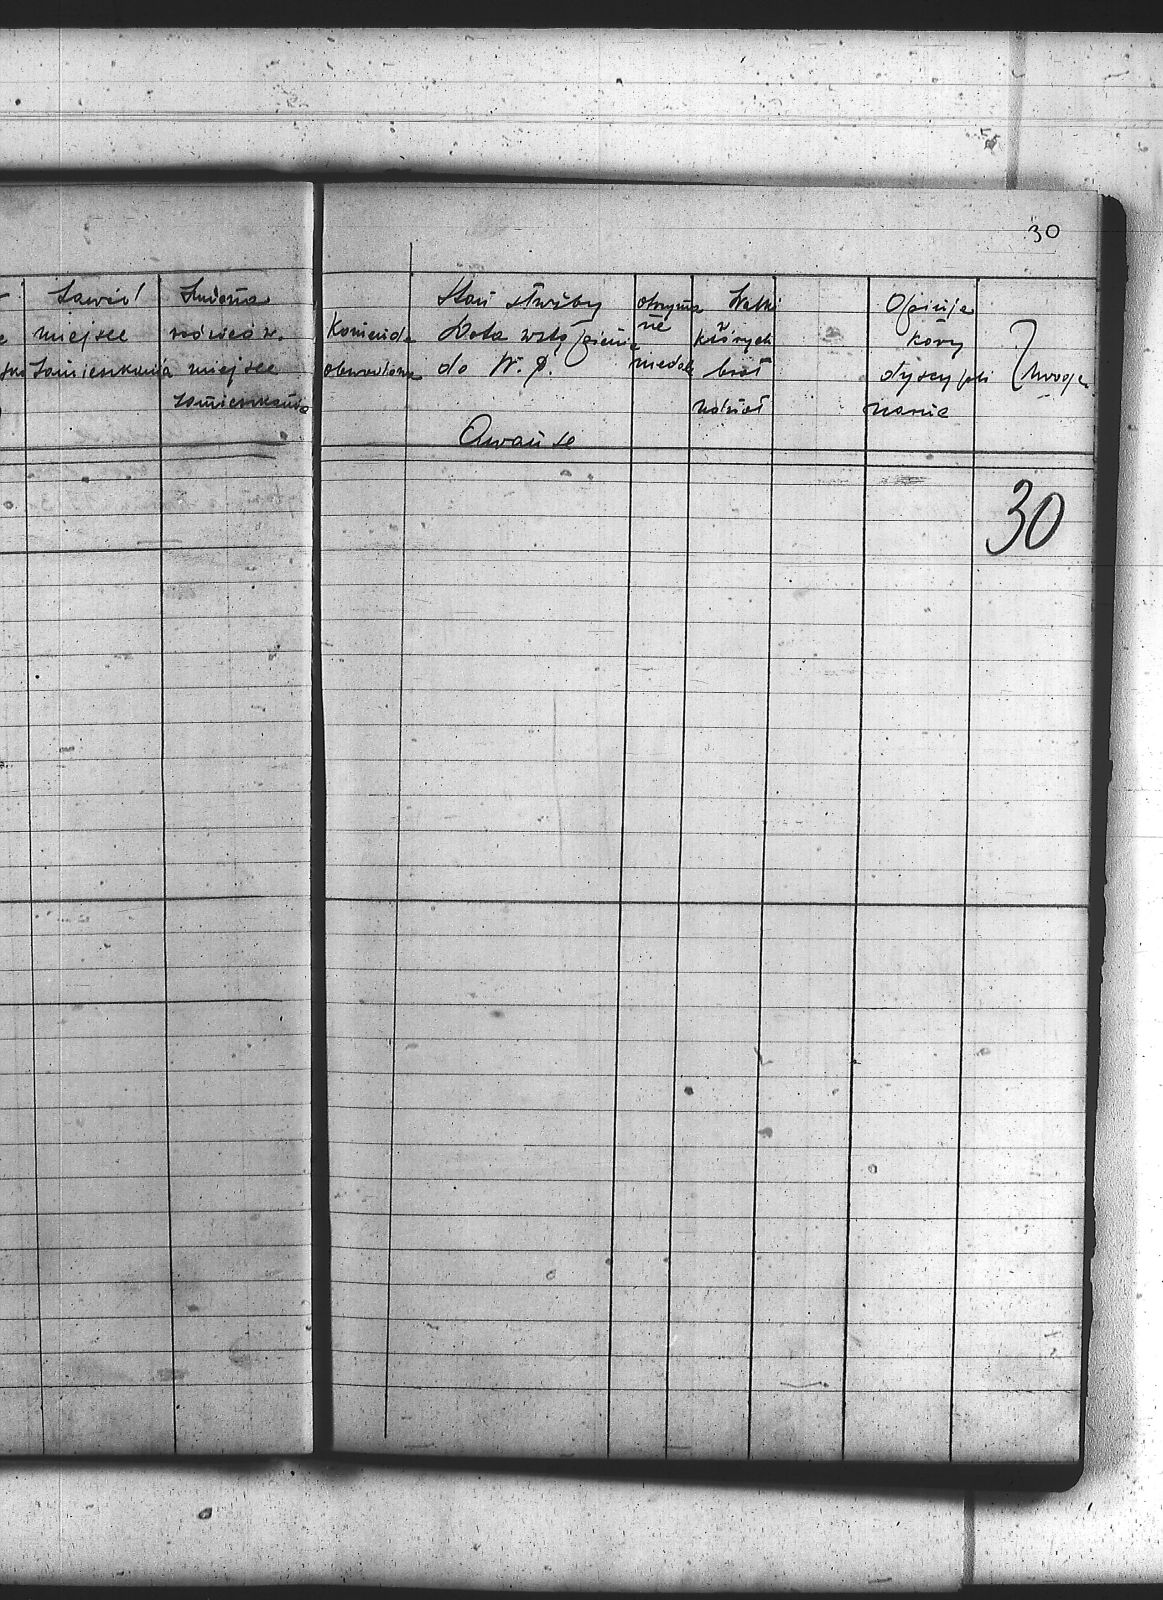 30
Zawód
miejsce
Zamieszkania
Imiona
rodziców.
miejsce
zamieszkania
Komenda
obwodowa
Stan służby
Data wstąpienia
do W. P.
Awanse
otrzyma
ne
medale
Walki
w
których
brał
udział
Opinja
kary
dyscypli
narne
Uwaga
30